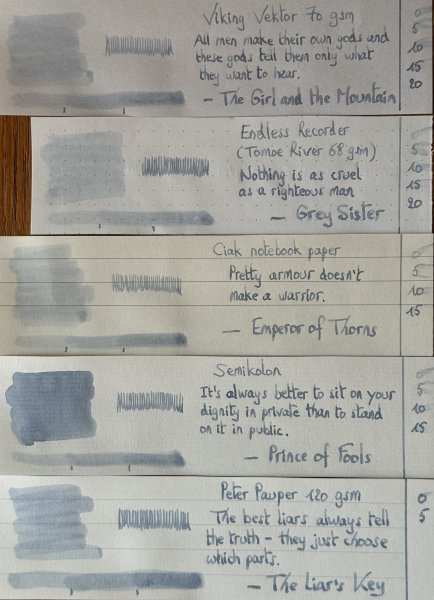 Viking Vektor 70 gsm
All men make their own gods and
these gods tell them only what
they want to hear.
- The Girl and the Mountain
0
5
10
15
20
Endless Recorder
(Tomoe River 68 gsm)
Nothing is as cruel
as a righteous man
- Grey Sister
0
5
10
15
20
Ciak notebook paper
Pretty armour doesn't
make a warrior.
- Emperor of Thorns
0
5
10
15
Semikolon
It's always better to sit on your
dignity in private than to stand
on it in public.
- Prince of Fools
0
5
10
15
Peter Pauper 120 gsm
The best liars always tell
the truth - they just choose
which parts.
- The Liar's Key
0
5